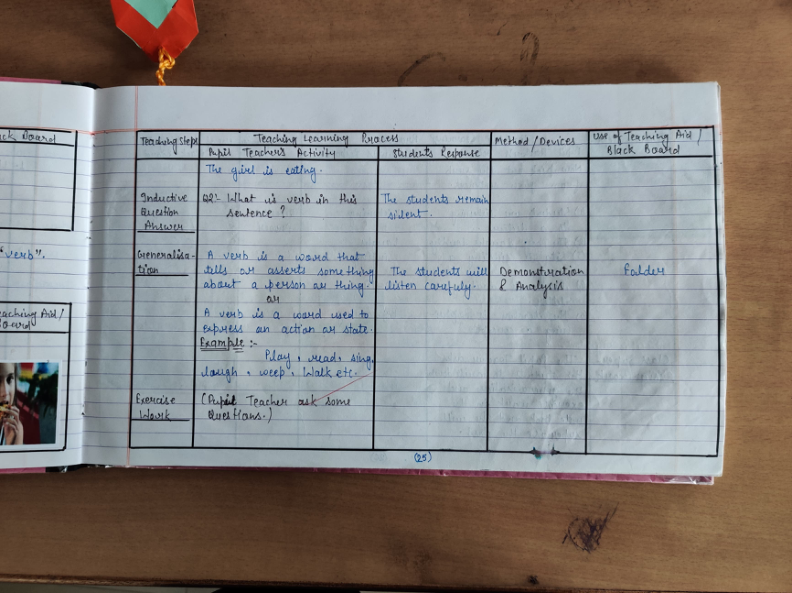 ck Board
"verb".
eaching Aid/
Board
Teaching Steps
Teaching Learning Process
Pupil Teacher's Activity
Student's Response
Method/Devices
Use of Teaching Aid/
Black Board
The girl is eating.
Inductive
Question
Answer
Q2:- What is verb in this
sentence?
The students remain
silent.
Generalisa-
tion
A verb is a word that
tells or asserts something
about a person or thing.
or
A verb is a word used to
express an action or state.
Example :-
Play, read, sing,
laugh, weep, Walk etc.
The students will
listen carefully.
Demonstration
& Analysis
Folder
Exercise
Work
(Pupil Teacher ask some
Questions.)
(25)